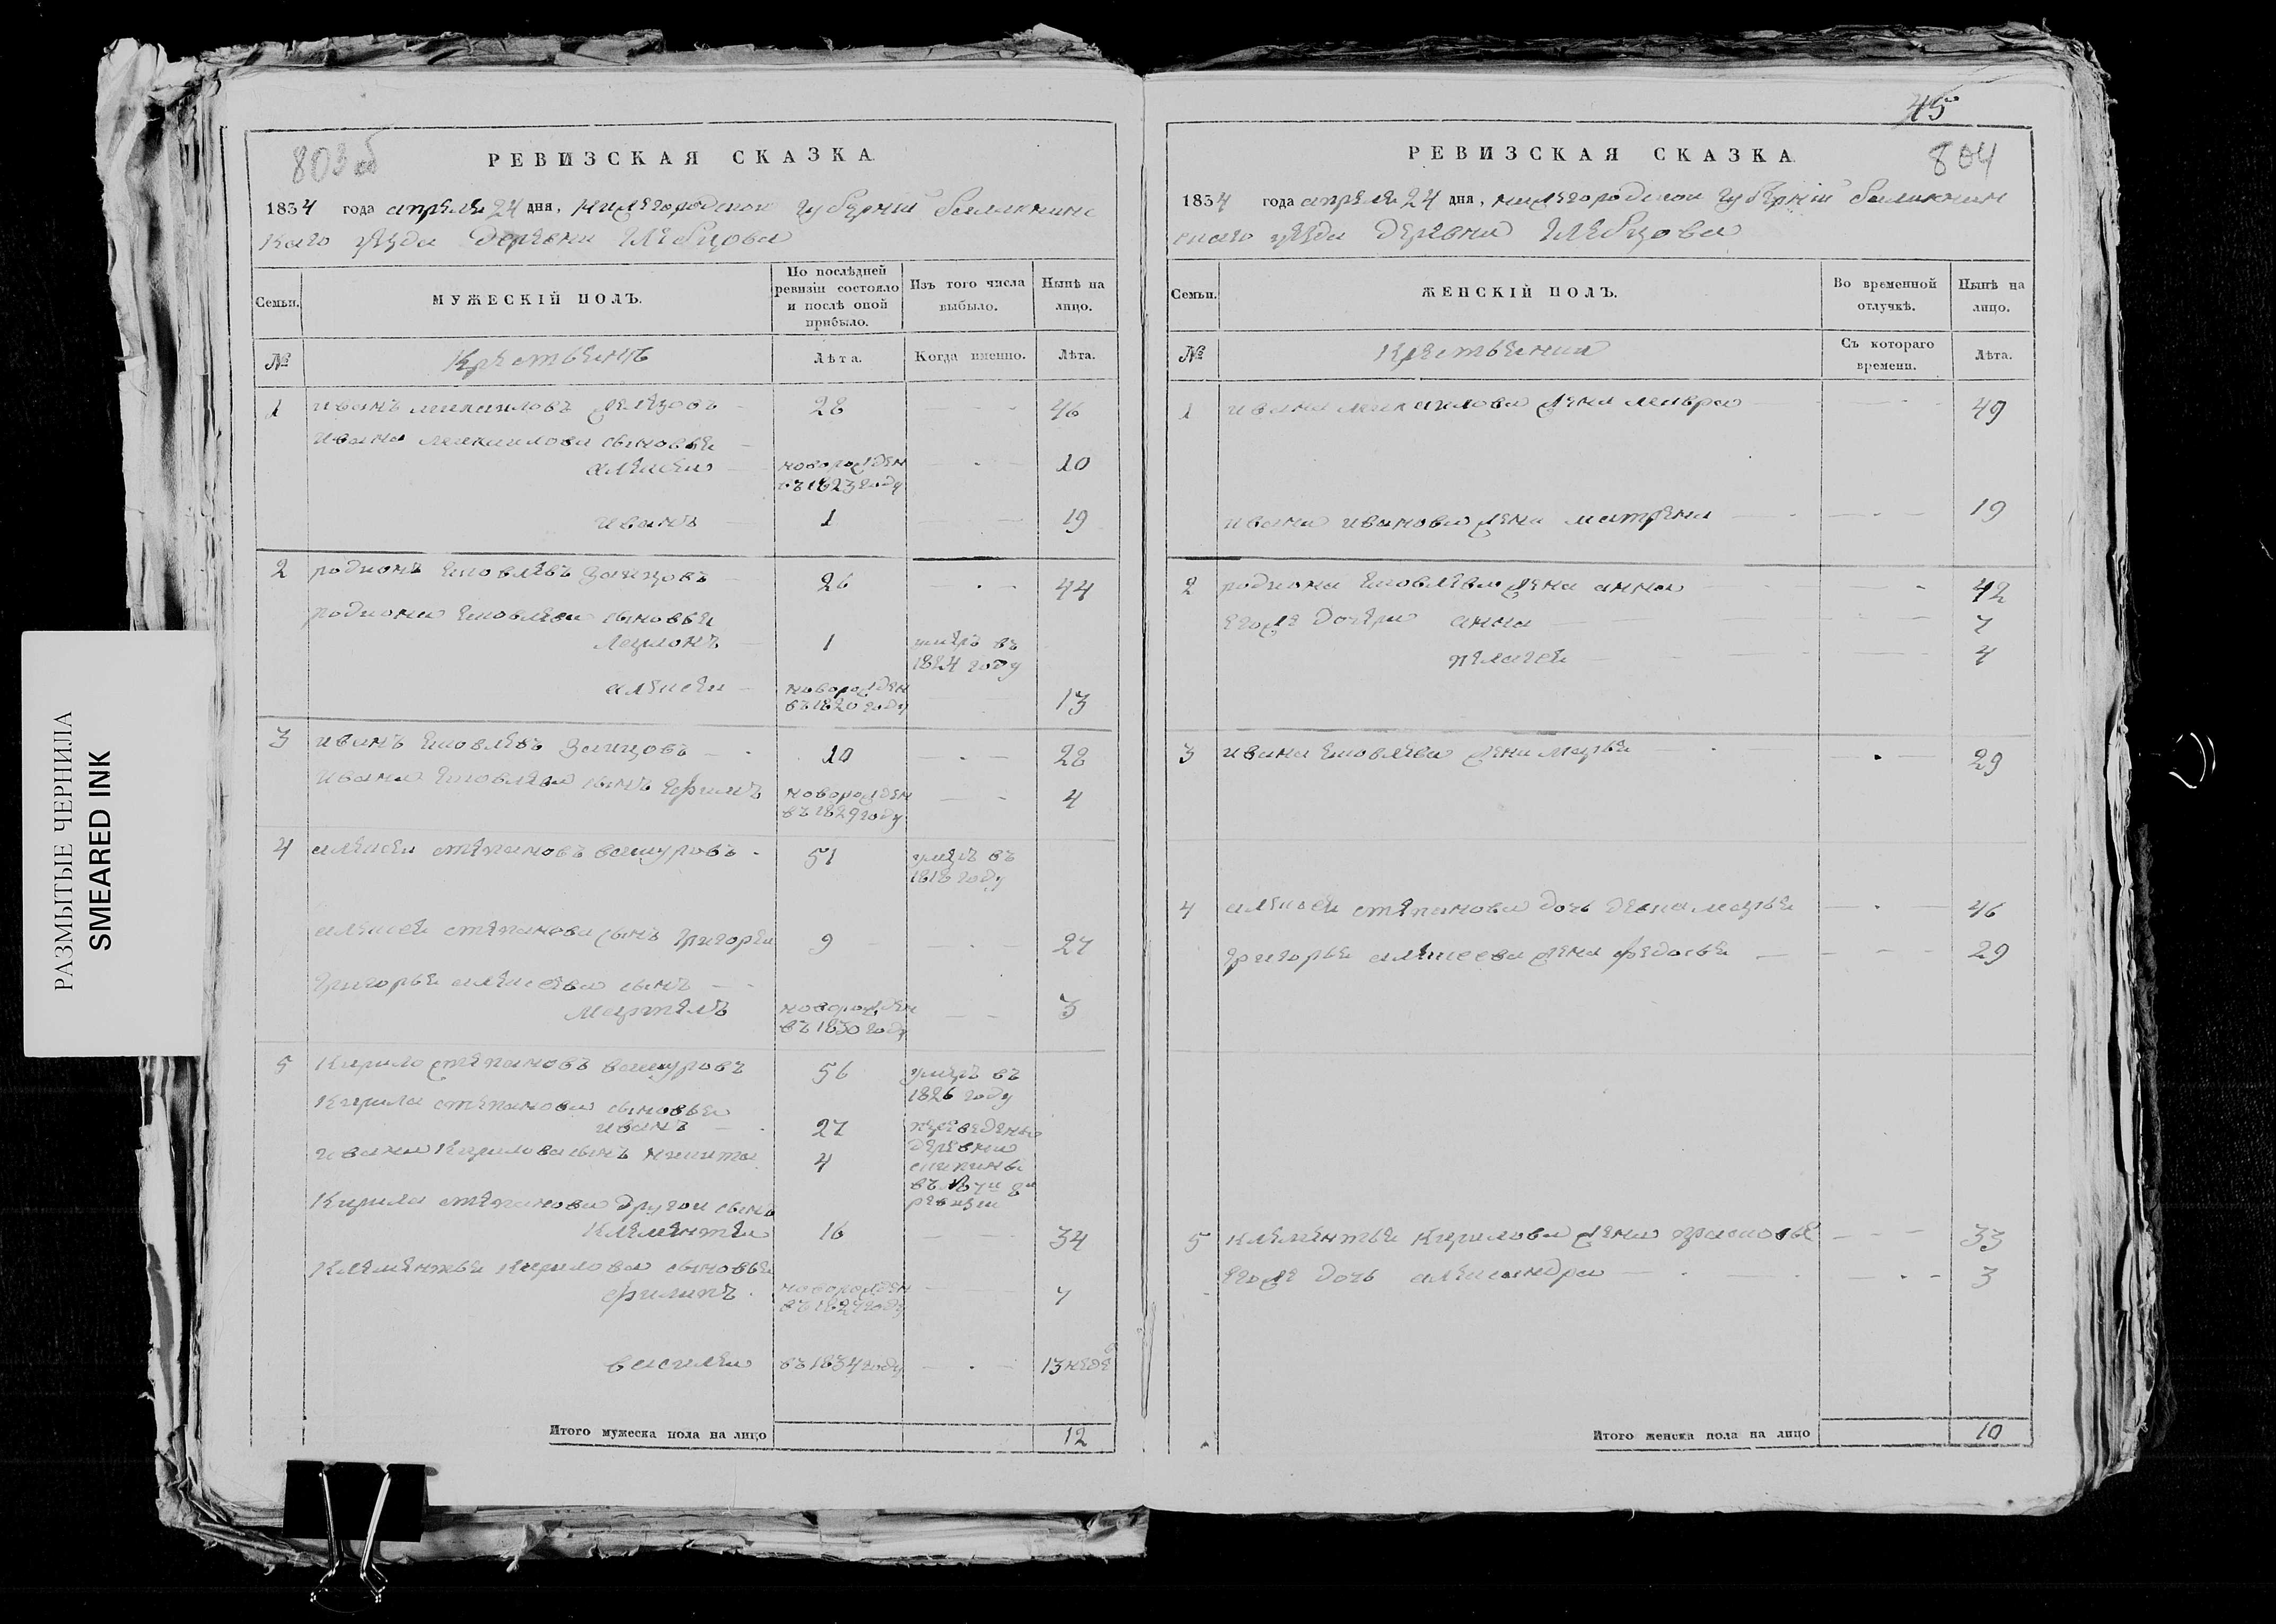 РАЗМЫТЫЕ ЧЕРНИЛА
SMEARED INK
803 об
РЕВИЗСКАЯ СКАЗКА.
1834 года апреля 24 дня, нижегородской губернии балахнинс
каго уезда деревни глебцова
Семьи.
МУЖЕСКІЙ ПОЛЪ.
По послѣдней ревизіи состояло и послѣ оной прибыло.
Изъ того числа выбыло.
Нынѣ на лицо.
№
крестьянъ
Лѣта.
Когда именно.
Лѣта.
1 иванъ михаиловъ 28 46
ивана михаилова сыновья
алексеи новорожден въ 1823 году 10
иванъ 1 19
2 родионъ яковлевъ заицовъ 26 44
родиона яковлева сыновья
1 умеръ въ 1824 году
алексеи новорожден въ 1820 году 13
3 иванъ яковлевъ заицовъ 10 28
ивана яковлева сынъ ефимъ новорожден въ 1829 году 4
4 алексеи степановъ вашуровъ 51 умеръ въ 1818 году
алексея степанова сынъ григореи 9 27
григорья алексеева сынъ
новорожден въ 1830 году 3
5 кирило степановъ вашуровъ 56 умеръ въ 1826 году
кирила степанова сыновья
иванъ 27 переведены
ивана кирилова сынъ никита 4 деревни
въ № 7и 8и ревизии
кирила степанова другои сынъ
клементеи 16 34
клементья кирилова сыновья
филипъ новорожден въ 1827 году 7
василеи въ 1834 году 13 неде
Итого мужеска пола на лицо 12
45
804
РЕВИЗСКАЯ СКАЗКА.
1834 года апреля 24 дня, нижегородскои губернии балахнин
скаго уезда деревни глебцова
Семьи.
ЖЕНСКІЙ ПОЛЪ.
Во временной отлучкѣ.
Нынѣ на лицо.
№
крестьянки
Съ котораго времени.
Лѣта.
1 ивана михаилова жена мавра 49
ивана иванова жена матрена 19
2 родиона яковлева жена анна 42
егоже дочери анна 7
пелагея 4
3 ивана яковлева жена марья 29
4 алексея степанова дочь девка марья 46
григорья алексеева жена федосья 29
5 клементья кирилова жена 33
егоже дочь александра 3
Итого женска пола на лицо 10